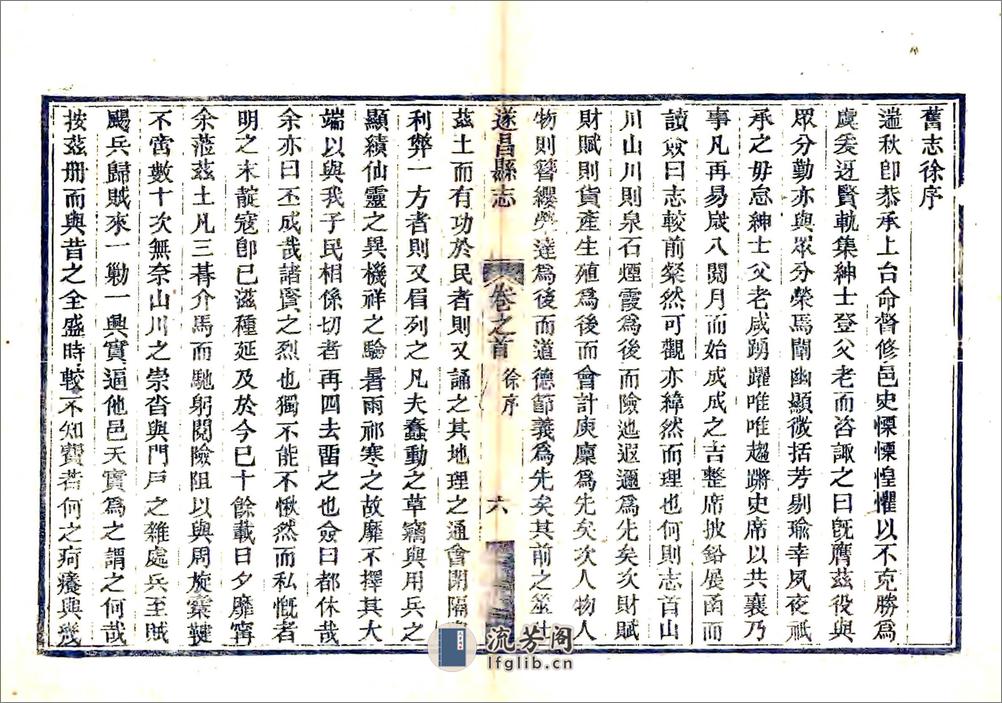 舊志徐序
邇秋卽恭承上台命督修邑史慄慄惶懼以不克勝爲
虞爰迓賢軌集紳士登父老而咨諏之曰旣膺茲役與
眾分勤亦與眾分榮焉闡幽顯微括芳剔瑜幸夙夜祗
承之毋怠紳士父老咸踴躍唯唯趨蹌史席以共襄乃
事凡再易歲八閱月而始成成之吉整席披鉛展函而
讀僉曰志較前粲然可觀亦緯然而理也何則志首山
川山川則泉石煙霞爲後而險迆遐邇爲先矣次財賦
財賦則貨產生殖爲後而會計庾廩爲先矣次人物人
物則簪纓 達爲後而道德節義爲先矣其前之
遂昌縣志
卷之首
徐序
六
茲土而有功於民者則又誦之其地理之通會開隔
利弊一方者則又眉列之凡夫蠢動之草竊與用兵之
顯績仙靈之異機祥之驗暑雨祁寒之故靡不擇其大
端以與我子民相係切者再四去畱之也僉曰都休哉
余亦曰丕成哉諸賢之烈也獨不能不愀然而私慨者
明之末靛寇卽已滋種延及於今已十餘載日夕靡寧
余蒞茲土凡三朞介馬而馳躬閱險阻以與周旋櫜鞬
不啻數十次無奈山川之崇沓與門戶之雜處兵至賊
颺兵歸賊來一勦一興實逼他邑天實爲之謂之何哉
按茲冊而與昔之全盛時較不知賣若何之疴癢與幾
流芳阁
lfglib.cn